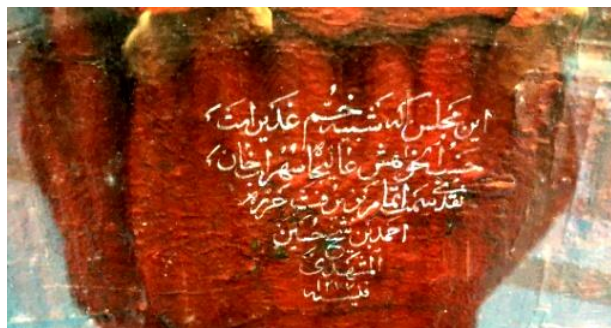 این مجلس که شبیه خُم غدیر است
حسب الخواهش عالیجاه سهراب خان
نقدی سمت اتمام پذیرفت حرره
احمد بن شیخ حسین
المشهدی
۱۲۱۷